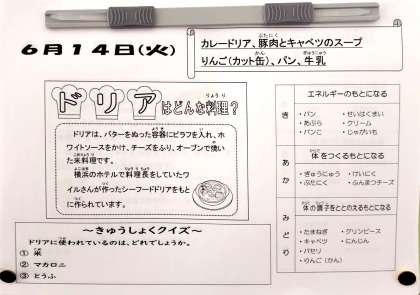 6月14日(火)
カレードリア、豚肉とキャベツのスープ
りんご(カット缶)、パン、牛乳
ドリアはどんな料理?
ドリアは、バターをぬった容器にピラフを入れ、ホ
ワイトソースをかけ、チーズをふり、オーブンで焼い
た米料理です。
横浜のホテルで料理長をしていたワ
イルさんが作ったシーフードドリアをもと
に作られています。
~きゅうしょくクイズ~
ドリアに使われているのは、どれでしょうか。
① 米
② マカロニ
③ とうふ
エネルギーのもとになる
き
・パン ・せいはくまい
・あぶら ・クリーム
・パンこ ・じゃがいも
体をつくるもとになる
あか
・ぎゅうにゅう ・けいにく
・ぶたにく ・ふんまつチーズ
体の調子をととのえるもとになる
みどり
・たまねぎ ・グリンピース
・キャベツ ・にんじん
・パセリ
・りんご(かん)